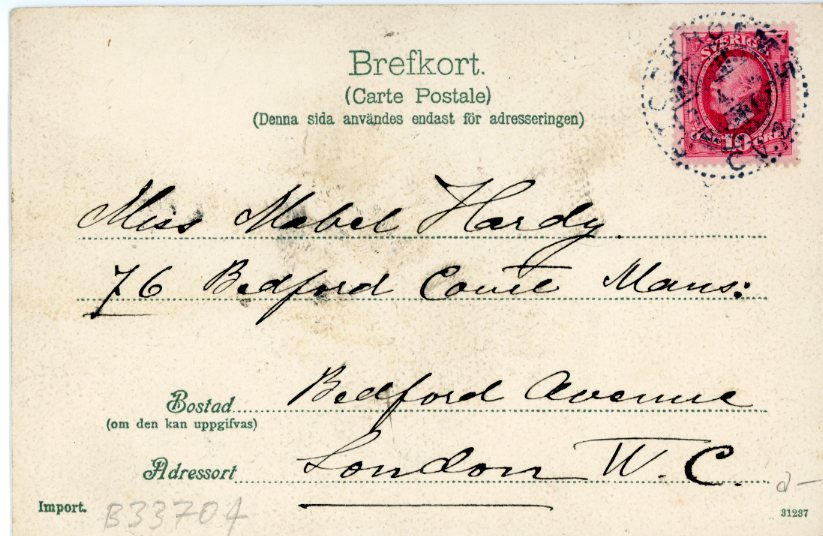 Brefkort.
(Carte Postale)
(Denna sida användes endast för adresseringen)
SVERIGE
10
Miss Mabel Hardy.
76 Bedford Court Mans:
Bostad Bedford Avenue
(om den kan uppgifvas)
Adressort London W. C.
Import.
B33704
31237